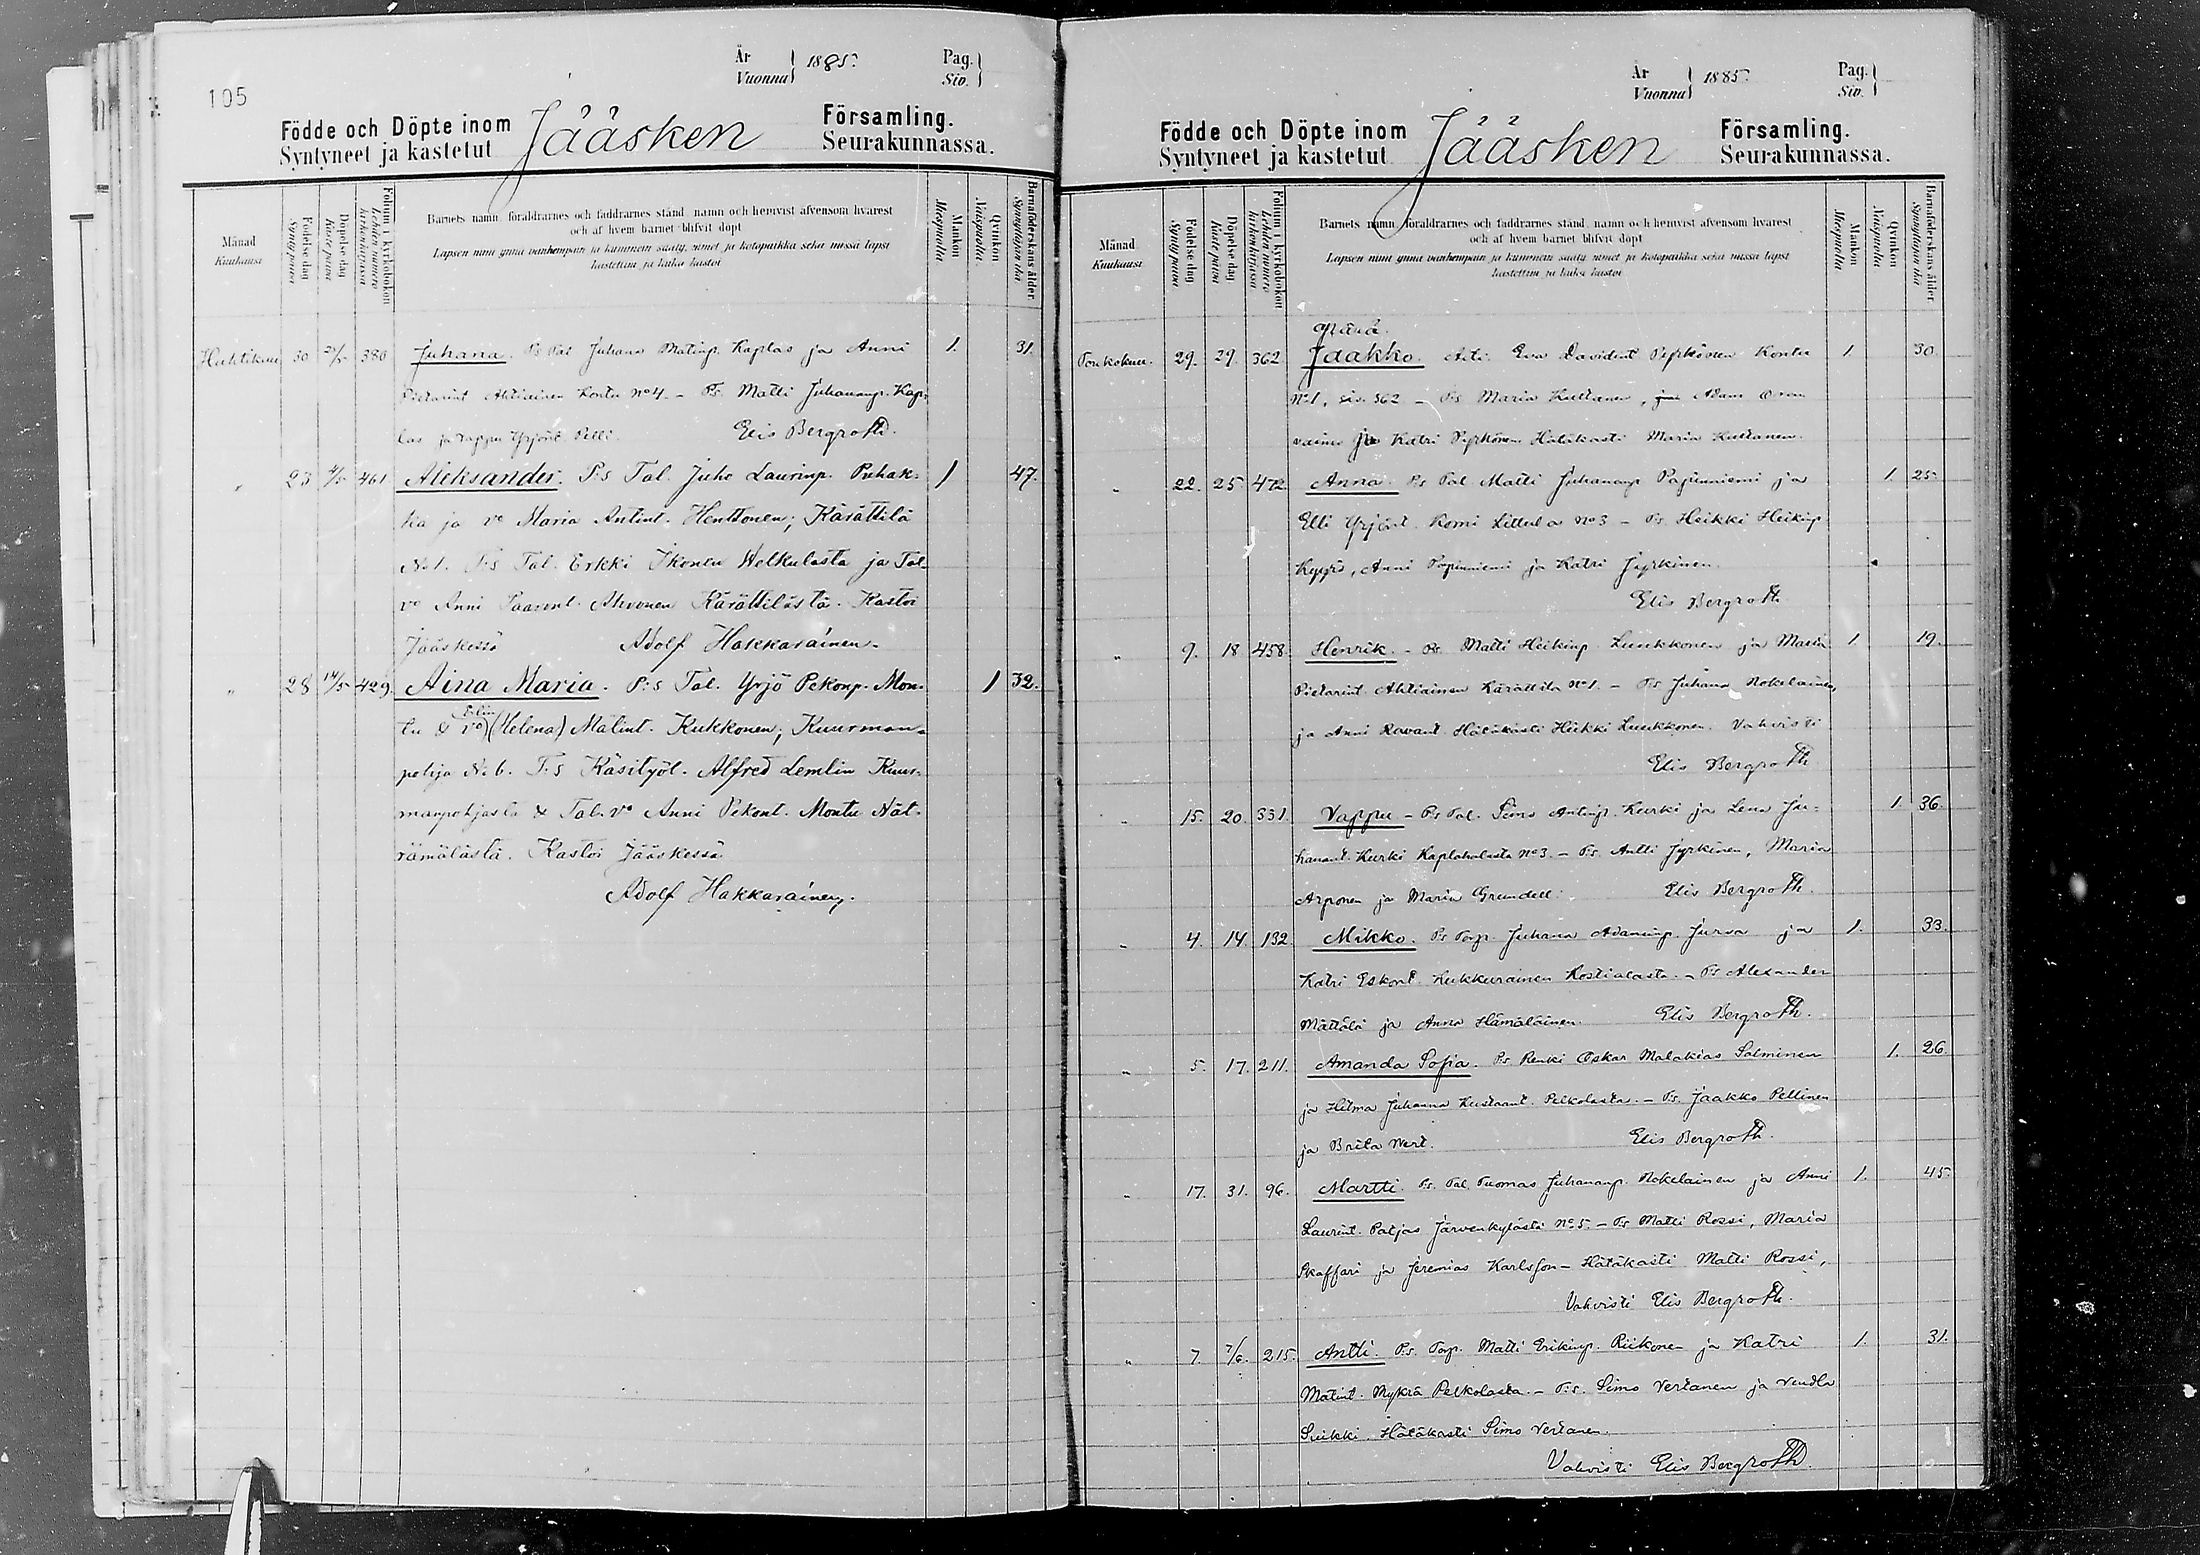 105
År
Vuonna 1885.
Pag.
Siv.
Födde och Döpte inom Jääsken Församling.
Syntyneet ja kastetut Seurakunnassa.
Månad
Kuukausi
Födelse dag
Syntypäivä
Döpelse dag
Kastepäivä
Folium i kyrkoboken
Lehden numero kirkonkirjassa
Barnets namn, föräldrarnes och faddrarnes stånd, namn och hemvist äfvensom hvarest
och af hvem barnet blifvit döpt
Lapsen nimi ynnä vanhempain ja kummein sääty, nimet ja kotopaikka sekä missä lapsi
kastettiin ja kuka kastoi
Mankön
Miespuolia
Qvinkön
Naispuolia
Barnaföderskans ålder
Synnyttäjän ikä
Huhtikuu 30 380 Juhana. Juhana Matinp. Kaplas ja Anni 1. 31.
Pietarint. Ahtiainen Kontu No 4. – Ts. Matti Juhananp. Kap-
las ja Vappu Yrjönt. Pelli. Elis Bergroth.
" 23 4/5 461 Aleksander. P:s Tal. Juho Laurinp. Puhak- 1 47.
ka ja vo Maria Antint. Henttonen; Kärättilä
No 1. T:s Tal. Erkki Ikonen Welkulasta ja Tal.
vo Anni Paavint. Ahvonen Kärättilästä. Kastoi
Jääskessä Adolf Hakkarainen.
" 28 14/5 429 Aina Maria. P:s Tal. Yrjö Pekonp. Mon- 1 32.
tu & vo (Helena) Matint. Kukkonen; Kuurman-
pohja No 6. T:s Käsityöl. Alfred Lemlin Kuur-
manpohjasta & Tal. vo Anni Pekont. Montu Nät-
rämälästä. Kastoi Jääskessä
Adolf Hakkarainen.
År
Vuonna 1885.
Pag.
Siv.
Födde och Döpte inom Jääsken Församling.
Syntyneet ja kastetut Seurakunnassa.
Månad
Kuukausi
Födelse dag
Syntypäivä
Döpelse dag
Kastepäivä
Folium i kyrkoboken
Lehden numero kirkonkirjassa
Barnets namn, föräldrarnes och faddrarnes stånd, namn och hemvist äfvensom hvarest
och af hvem barnet blifvit döpt
Lapsen nimi ynnä vanhempain ja kummein sääty, nimet ja kotopaikka sekä missä lapsi
kastettiin ja kuka kastoi
Mankön
Miespuolia
Qvinkön
Naispuolia
Barnaföderskans ålder
Synnyttäjän ikä
Toukokuu. 29. 29. 362 Jaakko. Eva Davidint. Pyrhönen Kontu 1. 30.
No 1, siv. 362 – Ts Maria Kuttanen, Adam Oron
vainen ja Katri Pyrhönen. Hätäkasti Maria Kuttanen.
" 22. 25. 472. Anna. Ps Tal. Matti Juhananp. Papinniemi ja 1. 25.
Elli Yrjönt. Komi Littula No 3 – Ts. Heikki Heikinp.
Kyyrö, Anni Papinniemi ja Katri Jyrkinen.
Elis Bergroth.
" 9. 18 458. Henrik. – Ps Matti Heikinp. Luukkonen ja Maria 1. 19.
Pietarint. Ahtiainen Kärättilä No 1. – Ts Juhana Nokelainen,
ja Anni Ravant. Hätäkasti Heikki Luukkonen. Vahvisti
Elis Bergroth
" 15. 20. 331. Vappu – Ps Tal. Simo Antinp. Kurki ja Lena Ju- 1. 36.
hanant. Kurki Kaplakalasta No 3. – Ts. Antti Jyrkinen, Maria
Arponen ja Maria Grundell. Elis Bergroth.
" 4. 14. 132 Mikko. Ps Torp. Juhana Adaminp. Jurva ja 1. 33.
Katri Eskont. Kukkurainen Kostialasta. – Ts Alexander
Mättölä ja Anna Hämäläinen. Elis Bergroth.
" 5. 17. 211. Amanda Sofia. Ps. Renki Oskar Malakias Salminen 1. 26
ja Hilma Juhanna Kustaant. Pelkolasta. – Ts. Jaakko Pellinen
ja Brita Wert. Elis Bergroth.
" 17. 31. 96. Martti. Ps. Tal. Tuomas Juhananp. Nokelainen ja Anni 1. 45.
Laurint. Patjas Järvenkylästä No 5. – Ts Matti Rossi, Maria
Skaffari ja Jeremias Karlsson – Hätäkasti Matti Rossi,
Vahvisti Elis Bergroth.
" 7. 7/6. 215. Antti. Ps. Torp. Matti Erikinp. Riikonen ja Katri 1. 31.
Matint. Mykrä Pelkolasta. – T:s. Simo Vertanen ja Vendla
Suikki. Hätäkasti Simo Vertanen.
Vahvisti Elis Bergroth.